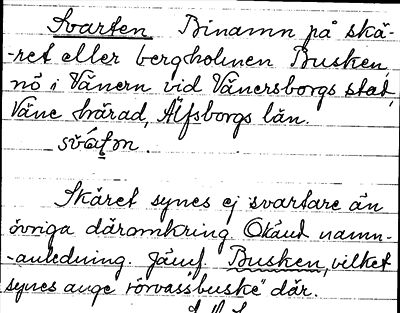 Svarten Binamn på skä-
-ret eller bergholmen Busken,
nö i Vänern vid Vänersborgs stad,
Väne härad, Älfsborgs län.
Skäret synes ej svartare än
övriga däromkring. Okänd namn-
-anledning. Jämf. Busken, vilket
synes ange "rörvass"buske" där.